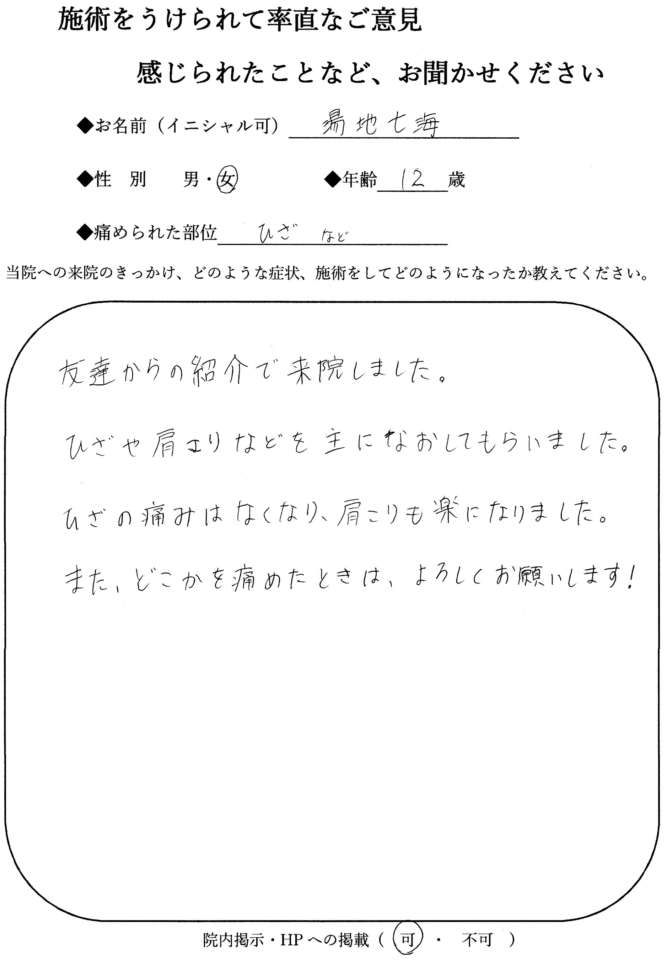 施術をうけられて率直なご意見
感じられたことなど、お聞かせください
◆お名前（イニシャル可） 地七海
◆性 別 男・女 ◆年齢 12 歳
◆痛められた部位 ひざ など
当院への来院のきっかけ、どのような症状、施術をしてどのようになったか教えてください。
友達からの紹介で来院しました。
ひざや肩こりなどを主になおしてもらいました。
ひざの痛みはなくなり、肩こりも楽になりました。
また、どこかを痛めたときは、よろしくお願いします！
院内掲示・HPへの掲載（ 可 ・ 不可 ）